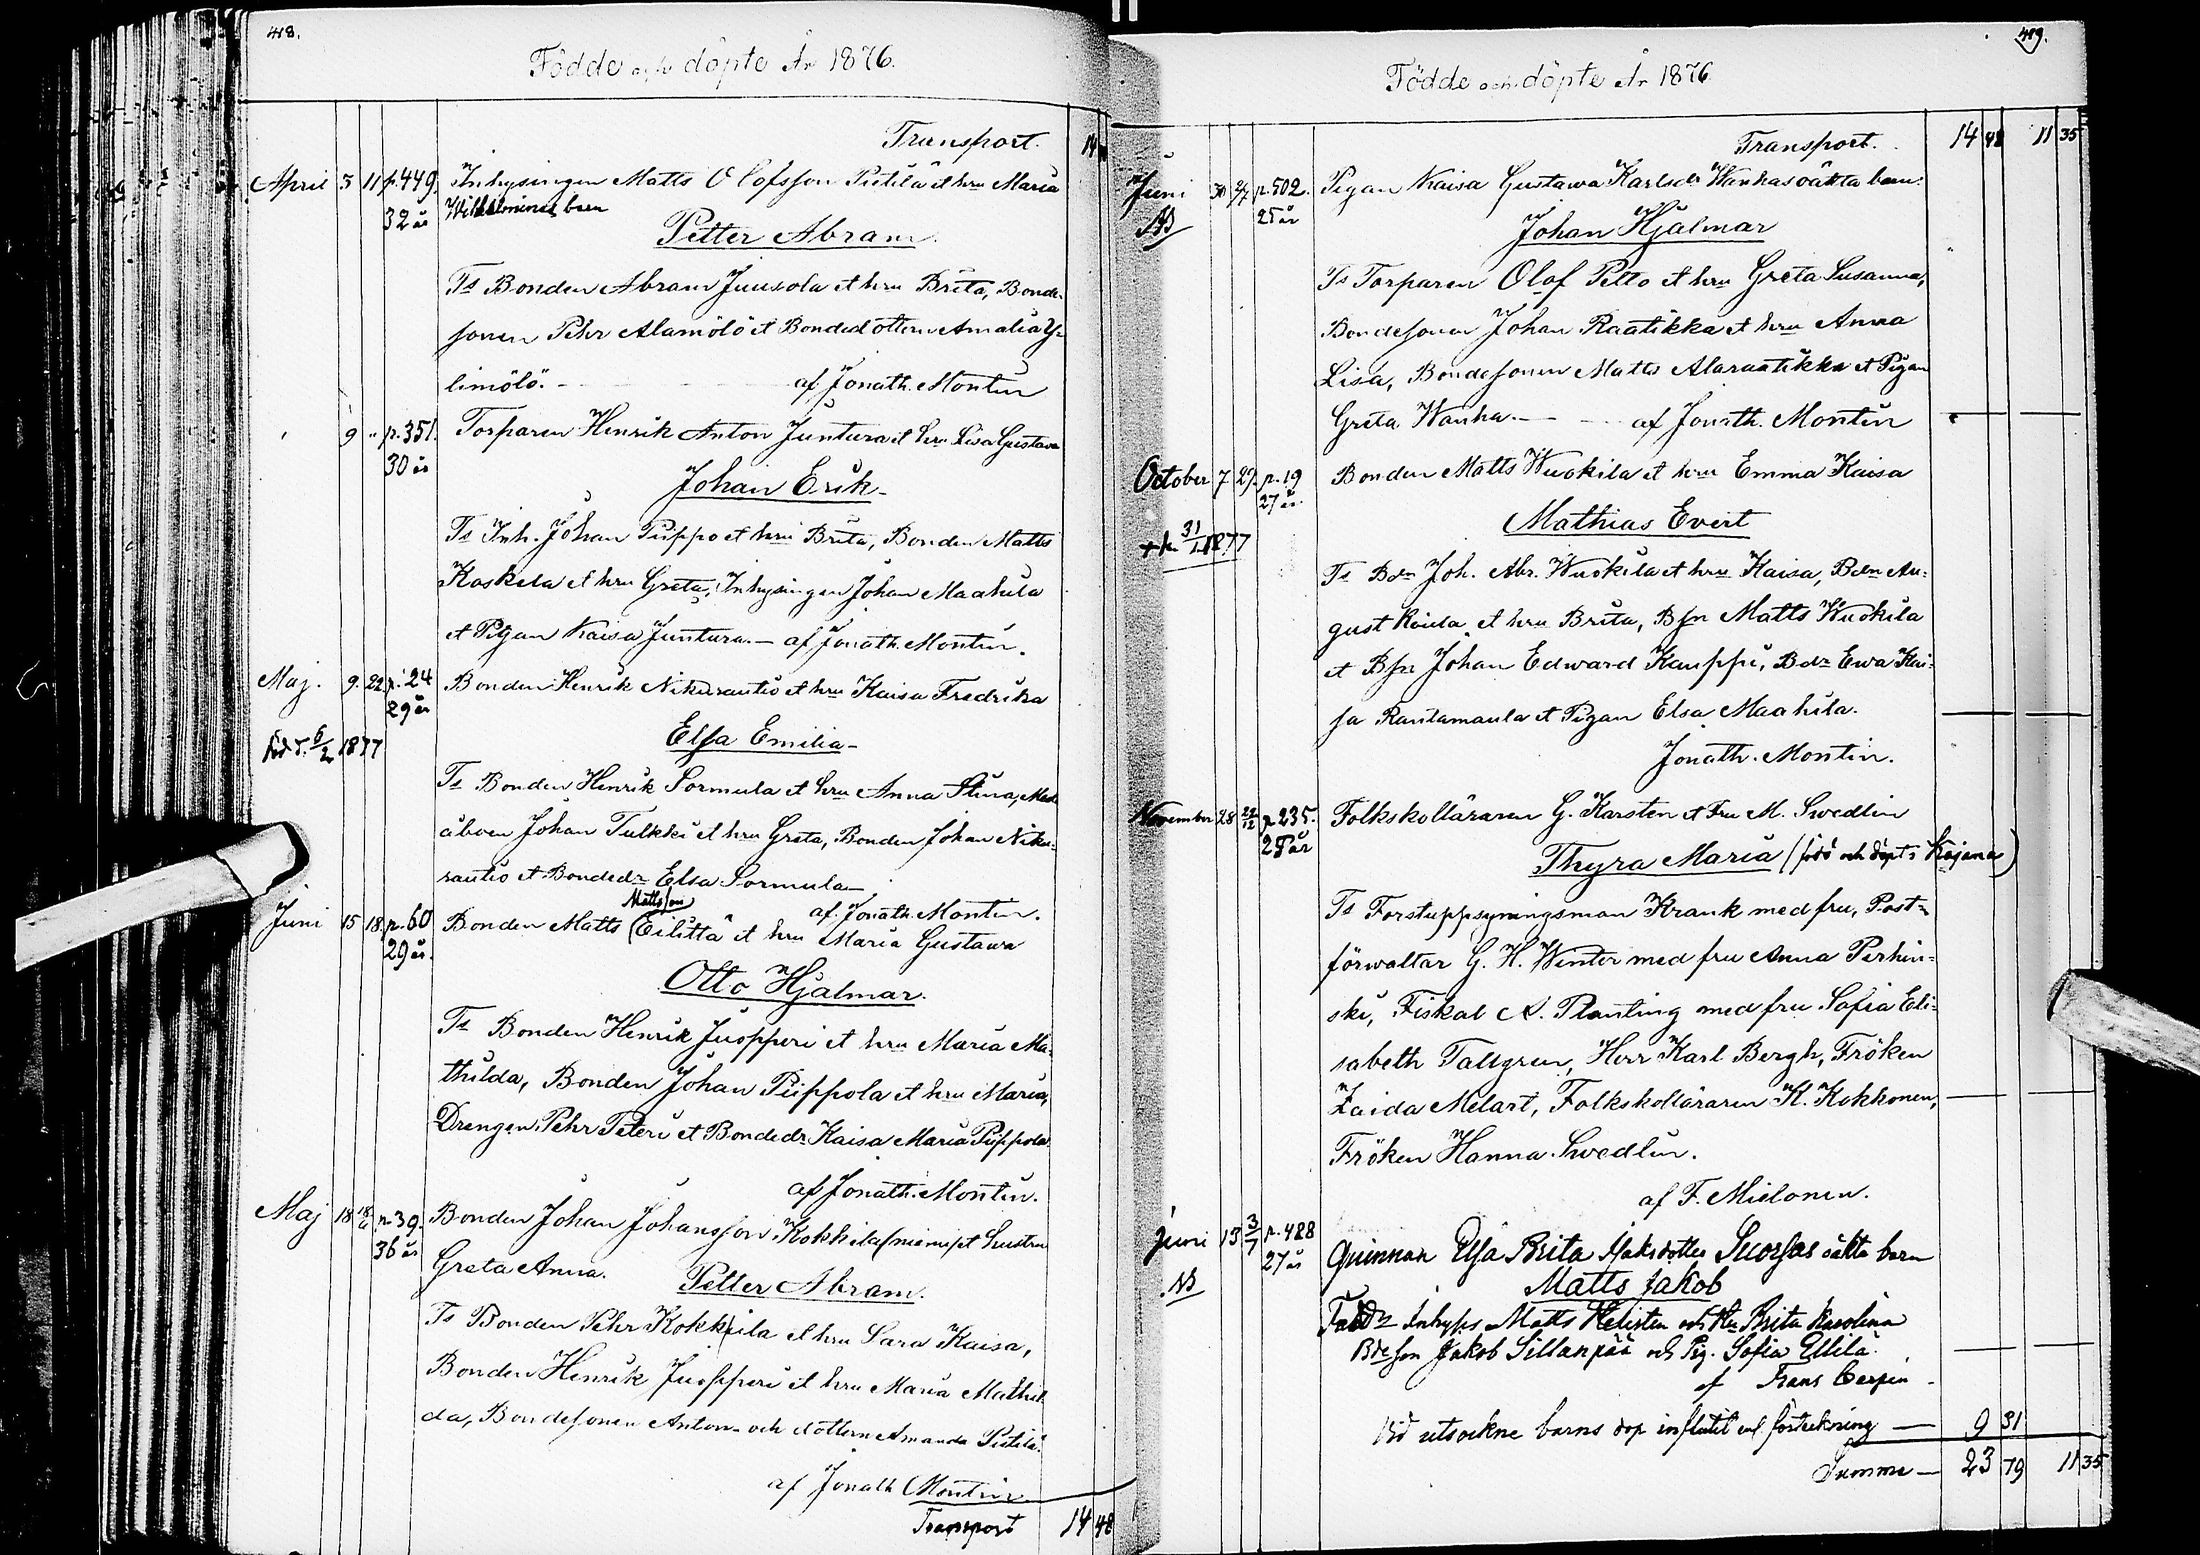 418.
Födde och döpte År 1876.
Transport. 14
April 3 11 p.449. Inhysingen Matts Olofsson Pietilä et hru Maria
32 år Wilhelminas barn
Petter Abram.
Ts Bonden Abram Juusola et hru Brita, Bonde-
sonen Pehr Alamölö et Bondedottern Amalia Y-
limölö. - af Jonath. Montin
9 " p.351. Torparen Henrik Anton Juntura et hru Lisa Gustava
30 år
Johan Erik-
Ts Inh. Johan Piippo et hru Brita, Bonden Matts
Koskela et hru Greta, Inhysingen Johan Maahila
et Pigan Kaisa Juntura. - af Jonath. Montin.
Maj. 9. 22. p. 24 Bonden Henrik Nikurautio et hru Kaisa Fredrika
29 år
Elsa Emilia-
död d. 6/2 1877
Ts Bonden Henrik Sormula et hru Anna Stina, Med-
åboen Johan Tulkki et hru Greta, Bonden Johan Niku-
rautio et Bondedr Elsa Sormula
af Jonath. Montin.
Juni 15 18. p.60 Bonden Matts Mattsson (Eilittä et hru Maria Gustava
29 år.
Otto Hjalmar.
Ts Bonden Henrik Juopperi et hru Maria Ma-
thilda, Bonden Johan Piippola et hru Maria,
Drengen Pehr Peteri et Bondedr Kaisa Maria Piippola
af Jonath. Montin.
Maj 18 18/6 p.39. Bonden Johan Johansson Kokkila et hustru
36 år Greta Anna. Petter Abram.
Ts Bonden Pehr Kokkila et hru Sara Kaisa,
Bonden Henrik Juopperi et hru Maria Mathil-
da, Bondesonen Anton och dottern Amanda Pietilä.
af Jonath Montin
Transport 14 48
419.
Födde och döpte År 1876
Transport. 14 48 11 35
Juni 30 2/7 p.502. Pigan Kaisa Gustava Karlsdr Wanhas oäkta barn.
25 år
Johan Hjalmar
Ts Torparen Olof Pelto et hru Greta Susanna,
Bondesonen Johan Raatikka et hru Anna
Lisa, Bondesonen Matts Alaraatikka et Pigan
Greta Wanha. - af Jonath. Montin
October 7 29. p.19 Bonden Matts Wuokila et hru Emma Kaisa
27 år
Mathias Evert
1877
Ts Bdn Joh. Abr. Wuokila et hru Kaisa, Bdn Au-
gust Koida et hru Brita, Bsn Matts Wuokila
et Bsn Johan Edward Kauppi, Bdr Ewa Kai-
sa Rautamaula et Pigan Elsa Maahila.
Jonath. Montin.
November 28 22/12 p.235. Folkskolläraren G. Karsten et Fru M. Swedlin
Thyra Maria (född och döpt i Kajana)
Ts Forstuppsyningsman Krank med fru, Post-
förwaltar G. H. Winter med fru Anna Perhin-
ski, Fiskal A. Planting med fru Sofia Eli-
sabeth Tallgren, Herr Karl Bergh, Fröken
Zaida Melart, Folkskolläraren K. Kokkonen,
Fröken Hanna Swedlin.
af F. Mielonen.
Juni 13 3/7 p.488 Quinnan Elsa Brita Jaksdotter Suorsas oäkta barn
27 år
Matts Jakob
Matts Helisten och Hu Brita Karolina
Bdeson Jakob Sillanpää och Pig. Sofia Ellilä.
af Frans Cerpin
Vid utsockne barns dop influtit enl. förteckning — 9 31
Summa — 23 79 11 35